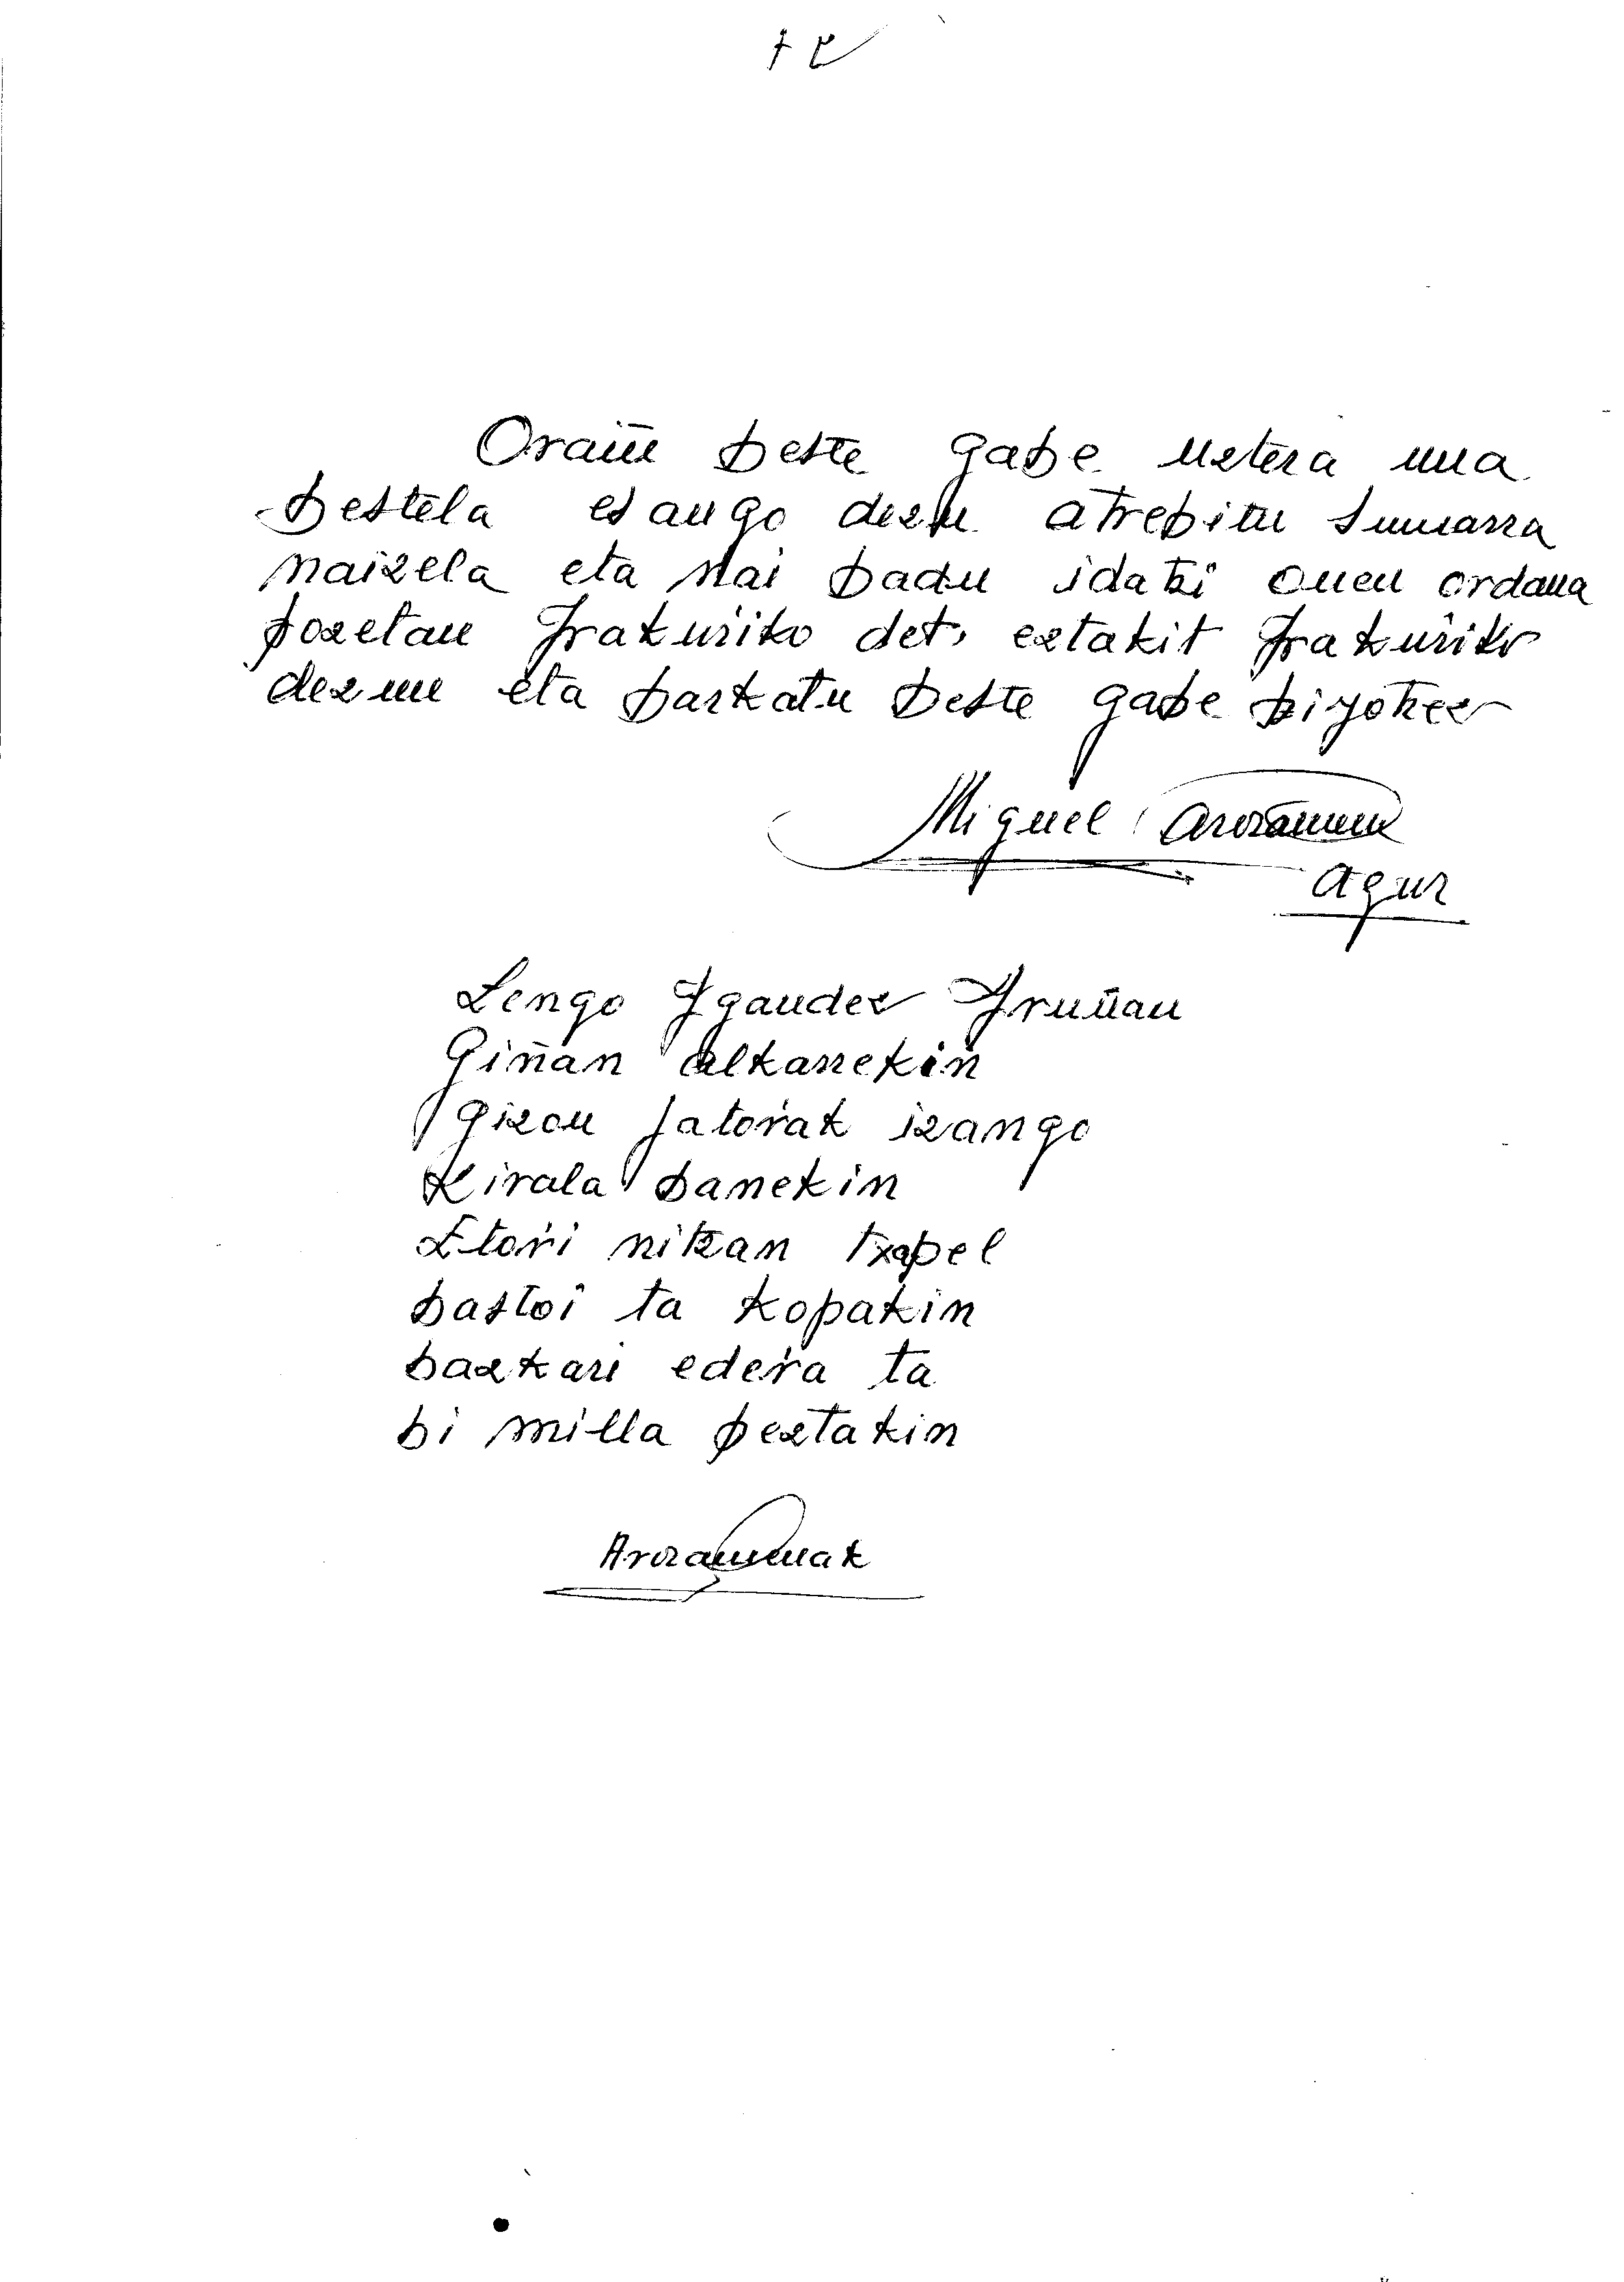 Orain beste gabe uztera nua
bestela esango dezu atrebitu
naizela eta nai badu idatzi onen ordaña
pozetan irakuriko det, eztakit irakuriko
dezun eta barkatu beste gabe biyotzez
Miguel Arozamena
agur
Lengo Igandez Iruñan
Giñan alkarrekin
Gizon jatorak izango
Zirala banekin
Etori nitzan txapel
bastoi ta kopakin
bazkari edera ta
bi milla peztakin
Arozamenak